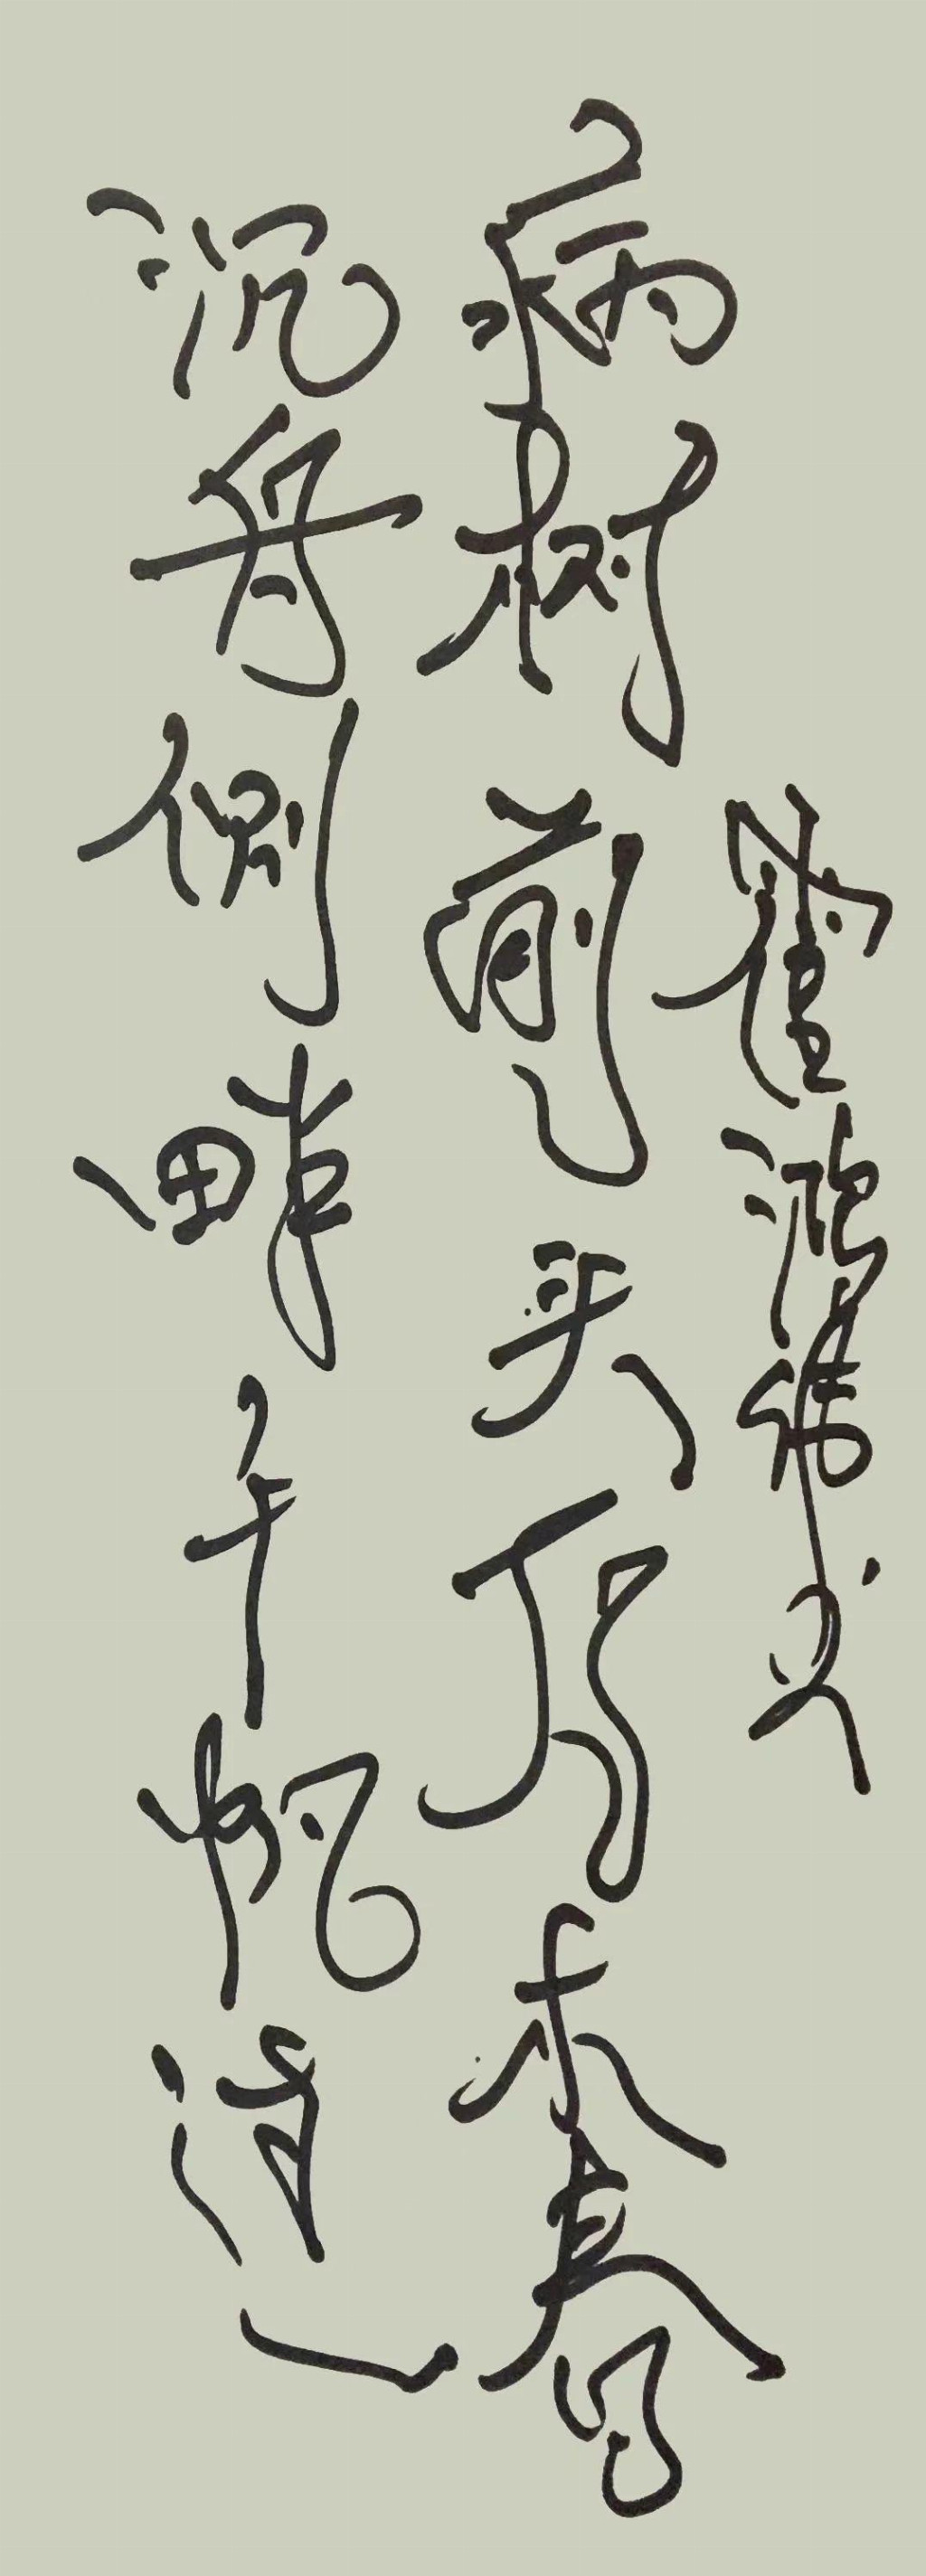 沉舟侧畔千帆過
病树前头万木春
鸿伟书